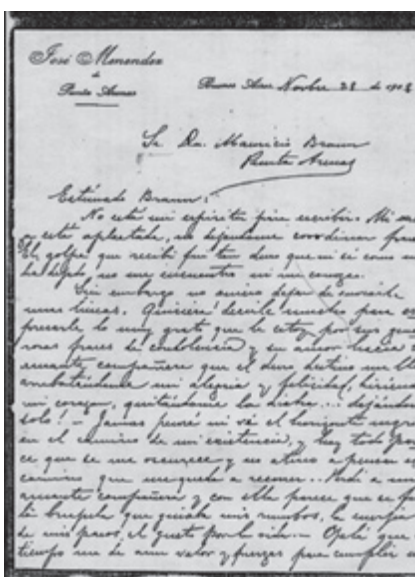 José Menendez
de
Punta Arenas
Buenos Aires Novbre 28 de 1908
Sr Dn. Mauricio Braun
Punta Arenas
Estimado Braun:
No está mi espíritu para escribir. Mi
está aplastada, no dejándome coordinar
El golpe que recibí fué tan duro que ni sé como
ha dejado no me encuentro ni me conozco.
Sin embargo no quiero dejar de enviarle
unas líneas. Quisiera decirle mucho para
lo muy grato que le estoy por sus
frases de condolencia y su amor hacia
amante compañera que el duro destino me
arrebatándome mi alegría y felicidad,
mi corazon, quitándome la dicha... dejándo
solo! - Jamas pensé ni vé el horizonte negro
en el camino de mi existencia, y hoy todo
ce que se me oscurece y no atino a pensar
camino que me queda a recorrer.. Perdí a
amante compañera y con ella parece que se
la brújula que guiaba mis rumbos, la energía
de mis pasos, el gusto por la vida. - Ojalá que
tiempo me dé aun valor y fuerzas para cumplir